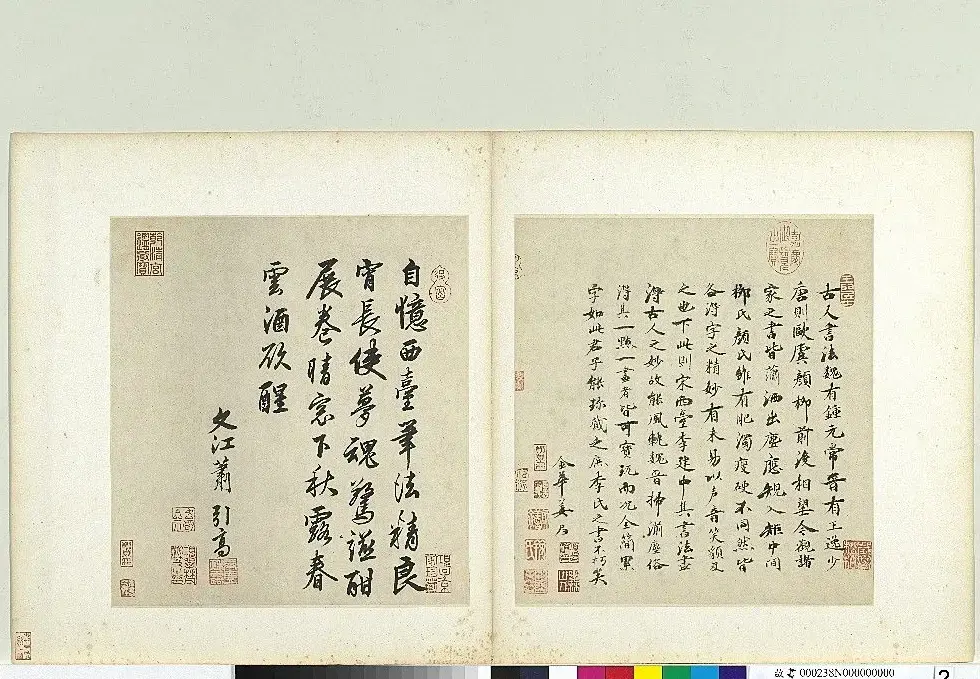 嘉慶御覽之寶
古人書法魏有鍾元常晉有王逸少
唐則歐虞顏柳前後相望今觀諸
家之書皆蕭洒出塵應規入矩中間
柳氏顏氏雖有肥濁瘦硬不同然皆
各得字之精妙有未易以声音笑貌及
之也下此則宋西臺李建中其書法盡
得古人之妙故能風軌魏晉掃滌塵俗
得其一點一畫者皆可寶玩而況全簡累
字如此君子能珍藏之庶李氏之書不朽矣
金華姜
自憶西臺筆法精良
宵長使夢魂驚謳酣
展卷晴窓下秋露春
雲酒欲醒
文江蕭引高
乾清宮鑑藏寶
000238N000000000
2